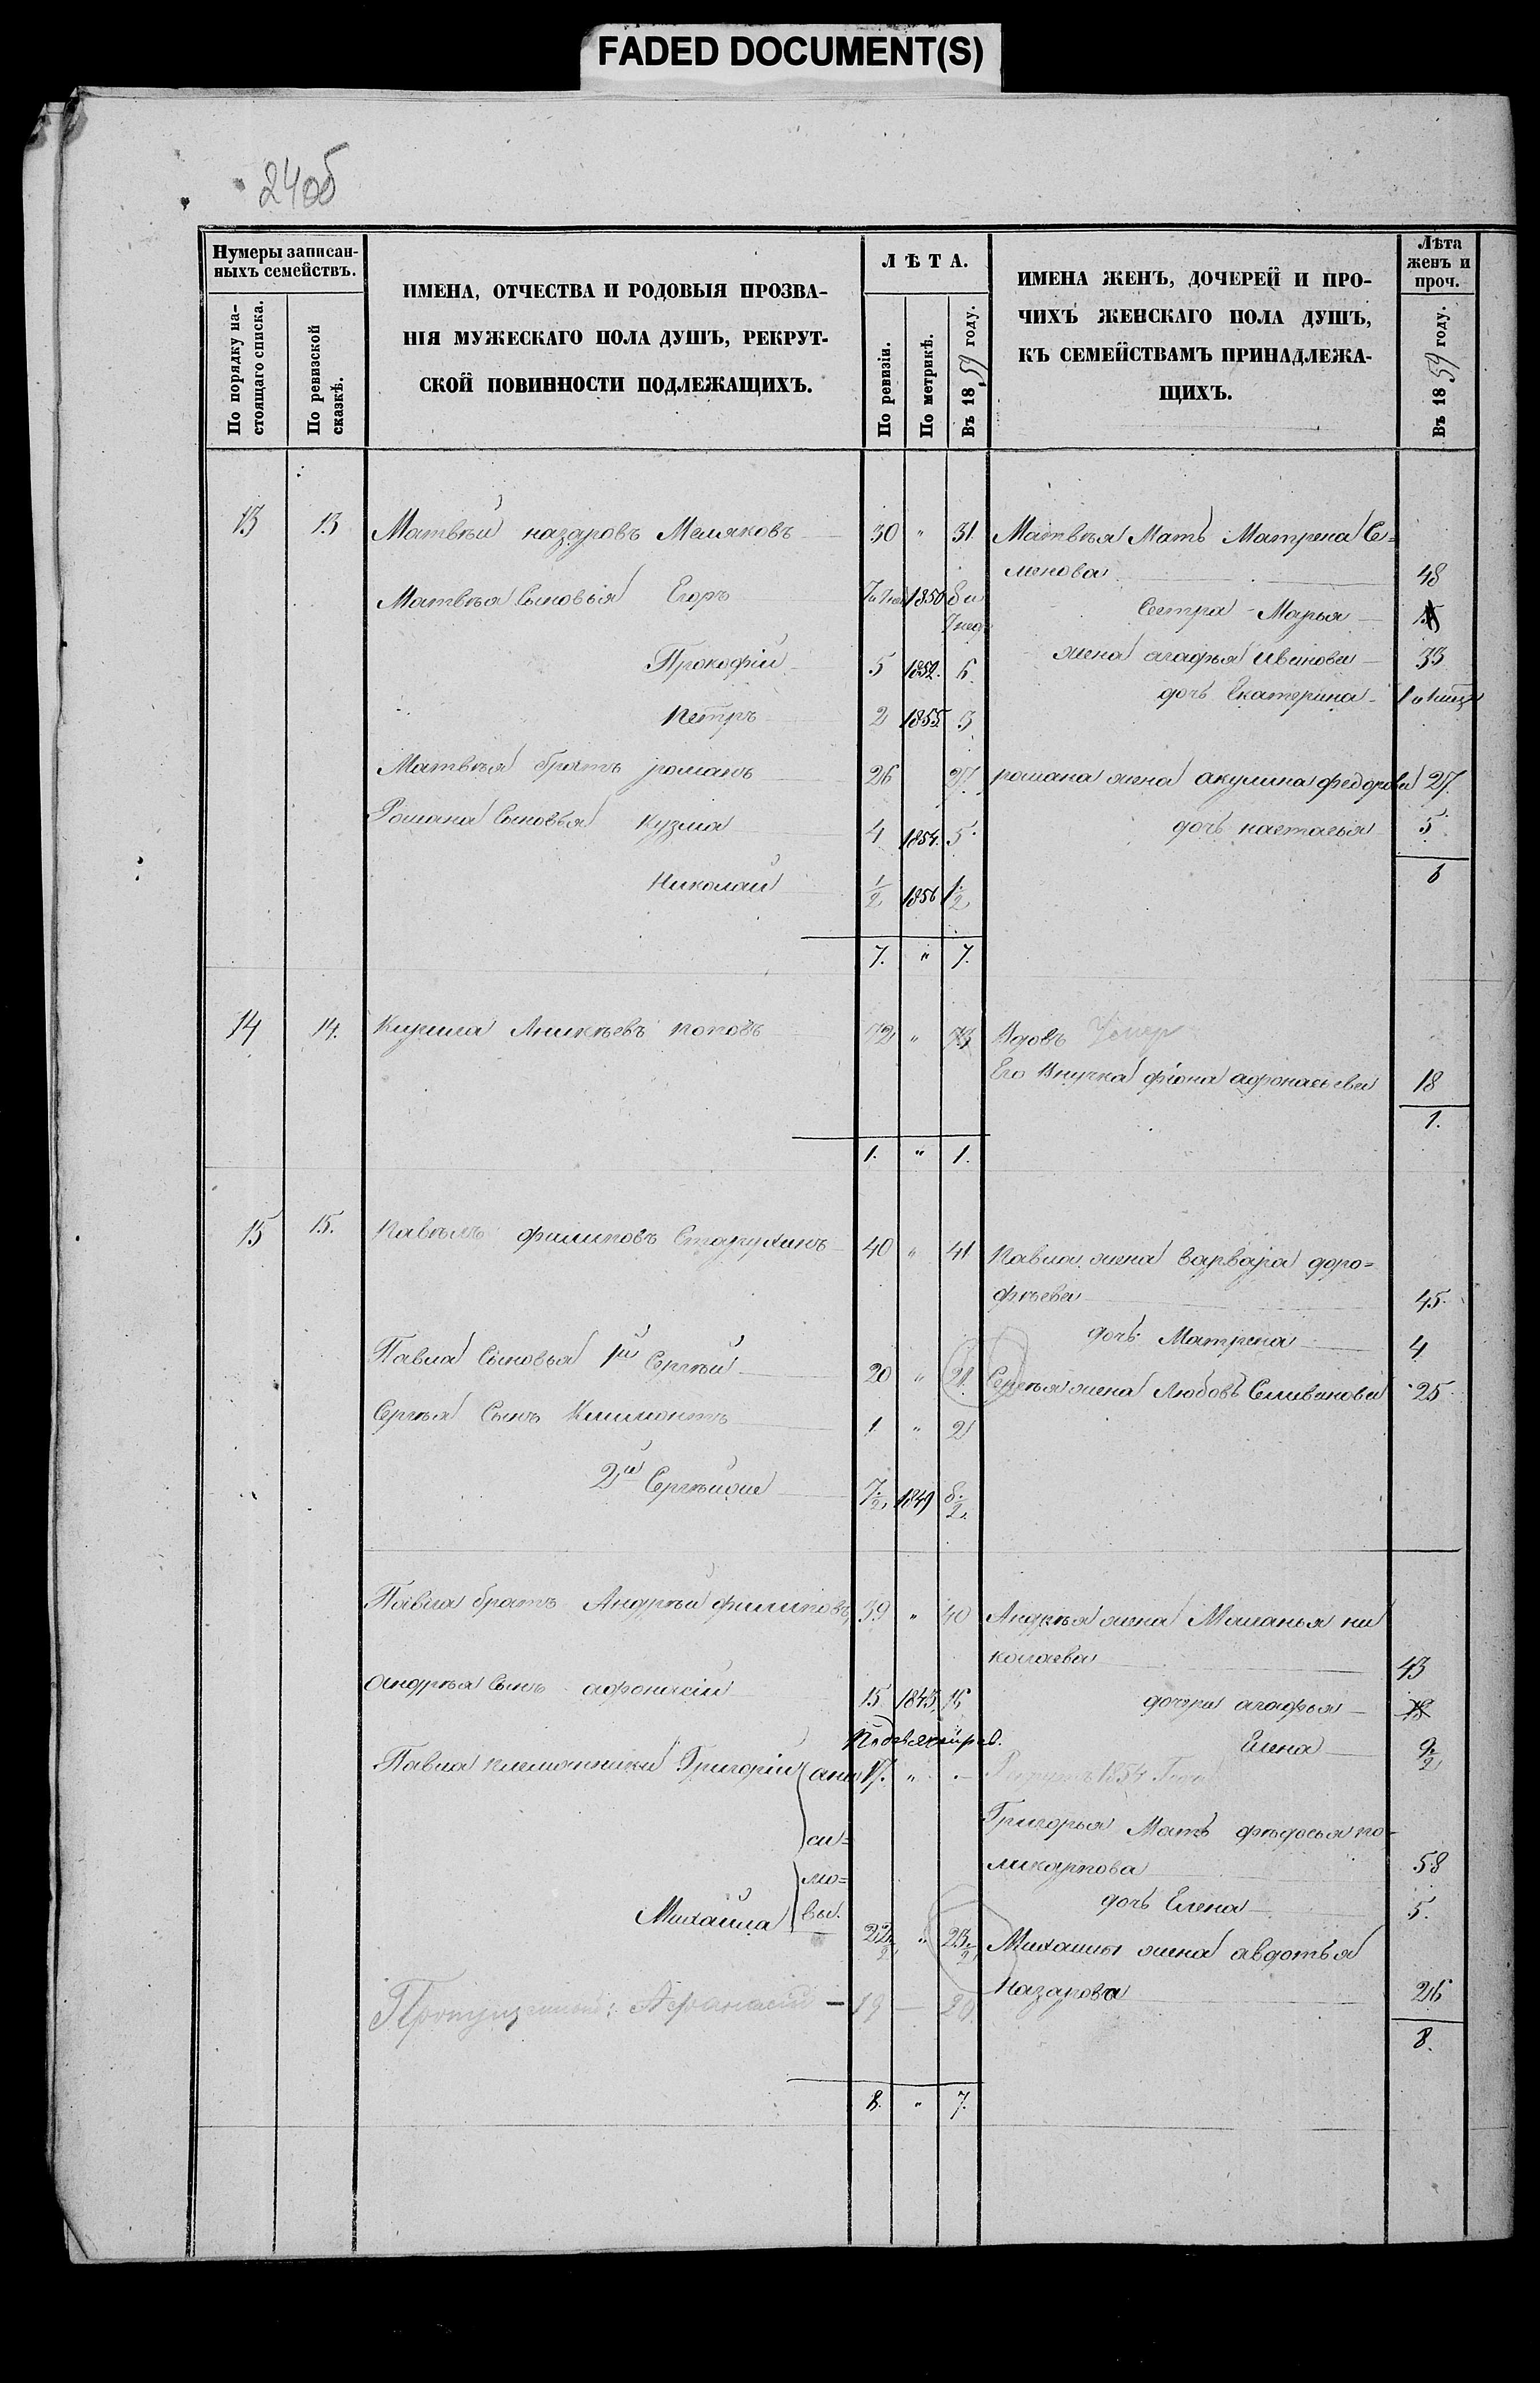 FADED DOCUMENT(S)
24об
Нумеры записан-
ныхъ семействъ.
По порядку на-
стоящаго списка.
По ревизской
сказкѣ.
ИМЕНА, ОТЧЕСТВА И РОДОВЫЯ ПРОЗВА-
НІЯ МУЖЕСКАГО ПОЛА ДУШЪ, РЕКРУТ-
СКОЙ ПОВИННОСТИ ПОДЛЕЖАЩИХЪ.
ЛѢТА.
По ревизіи.
По метрикѣ.
Въ 1859 году.
ИМЕНА ЖЕНЪ, ДОЧЕРЕЙ И ПРО-
ЧИХЪ ЖЕНСКАГО ПОЛА ДУШЪ,
КЪ СЕМЕЙСТВАМЪ ПРИНАДЛЕЖА-
ЩИХЪ.
Лѣта
женъ и
проч.
Въ 1859 году.
13 13 Матвѣй назаровъ Меляковъ 30 " 31. Матвѣя Мать Матрена Се=
менова 48
Матвѣя Сыновья Егоръ 1850 8 и
7 нед.
Сестра - Марья
Прокофій 5 1852. 6.
жена агафья Иванова 33
дочь Екатерина
Петръ 2 1855 3
Матвѣя братъ романъ 26 27. романа жена акулина федорова 27.
Романа Сыновья Кузма 4 1854. 5. дочь настасья 5
6
Николай 1/2 1856 1 1/2
7. " 7.
14 14. Кирила Аникѣевъ поповъ 72 " 73 Вдовъ Умер
Его Внучка фіона афонасьева 18
1.
1. " 1.
15 15. Павелъ филиповъ Старухинъ 40 " 41 Павла жена варвара доро=
фѣева 45.
дочь Матрена 4
Павла Сыновья 1й Сергѣй 20 " 21. Сергѣя жена Любовь Селиванова 25
Сергѣя Сынъ Климонтъ 1 " 2
2й Сергѣй 7 1/2 1849 8 1/2
Павла братъ Андрѣй филиповъ 39 " 40 Андрѣя жена Маланья ни
колаева 43
андрѣя Сынъ афонасій 15 1843. 16 дочери агафья 18
Елена 9 1/2
Павла племянники Григорій ани 17. " - Рекрутъ 1854 Года
си=
мо=
вы.
Григорья Мать федосья по-
ликарпова 58
дочь Елена 5.
Михайла 22 1/2 " 23 1/2 Михайлы жена авдотья
Назарова 26
8.
Пропущенный: Афанасій - 19 - 20.
8. " 7.